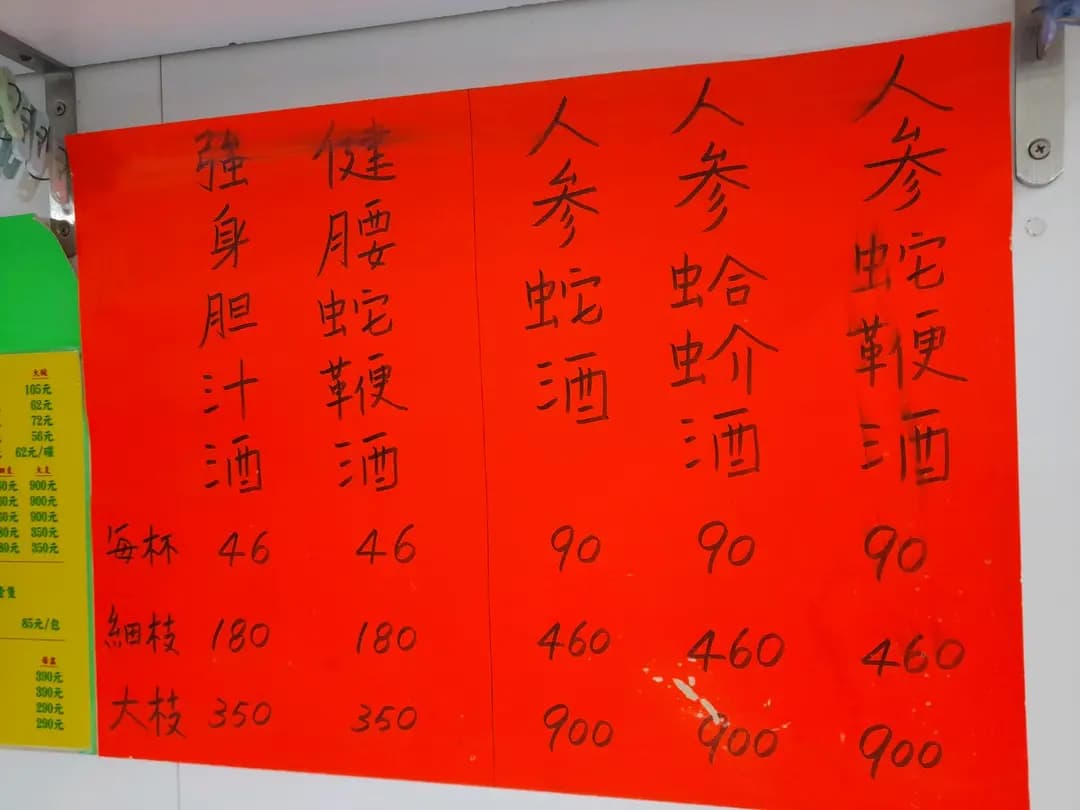 強身胆汁酒
健腰蛇鞭酒
人参蛇酒
人参蛤蚧酒
人参蛇鞭酒
每杯 46 46 90 90 90
細枝 180 180 460 460 460
大枝 350 350 900 900 900
大碗
105元
62元
72元
56元
62元/碟
大支
900元
900元
900元
350元
350元
85元/包
390元
390元
290元
290元